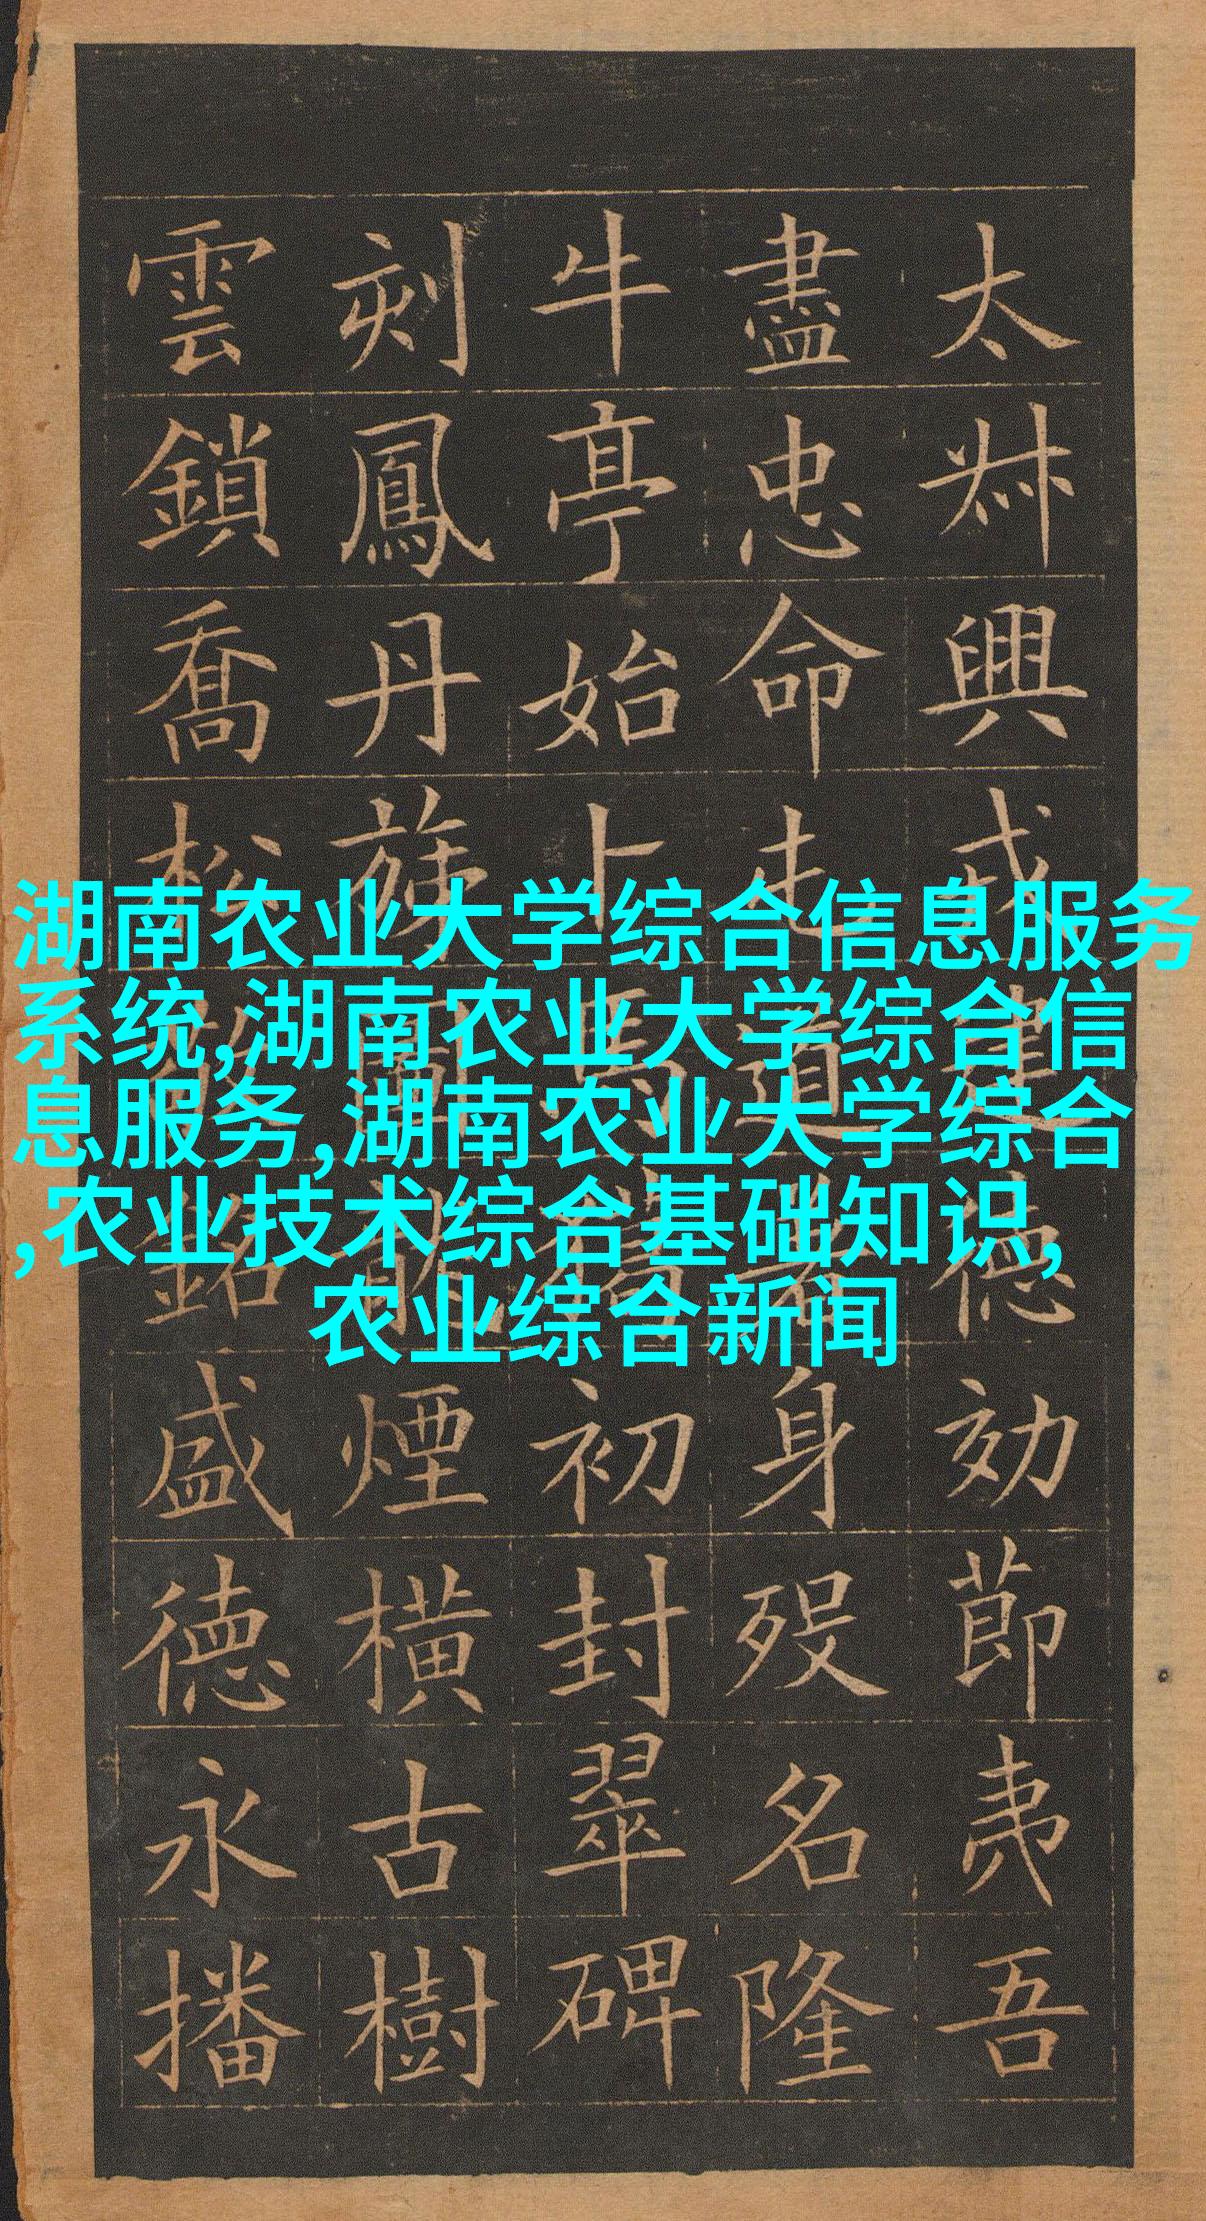 太叔興戎建德効節夷吾
盡忠命屯道著身殁名隆
牛亭始卜馬鬣初封翠碑
刻鳳丹旐圖龍煙橫古樹
雲鎖喬松敬銘盛德永播
湖南农业大学综合信息服务
系统,湖南农业大学综合信
息服务,湖南农业大学综合
,农业技术综合基础知识,
农业综合新闻